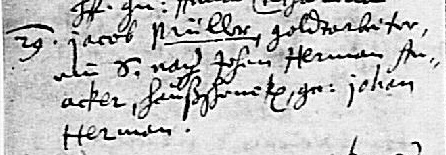 29. Jacob Müller, goldtarbeiter,
ein S. nach John Herman An„
acker, haußschenck, gn: Johan
Herman.